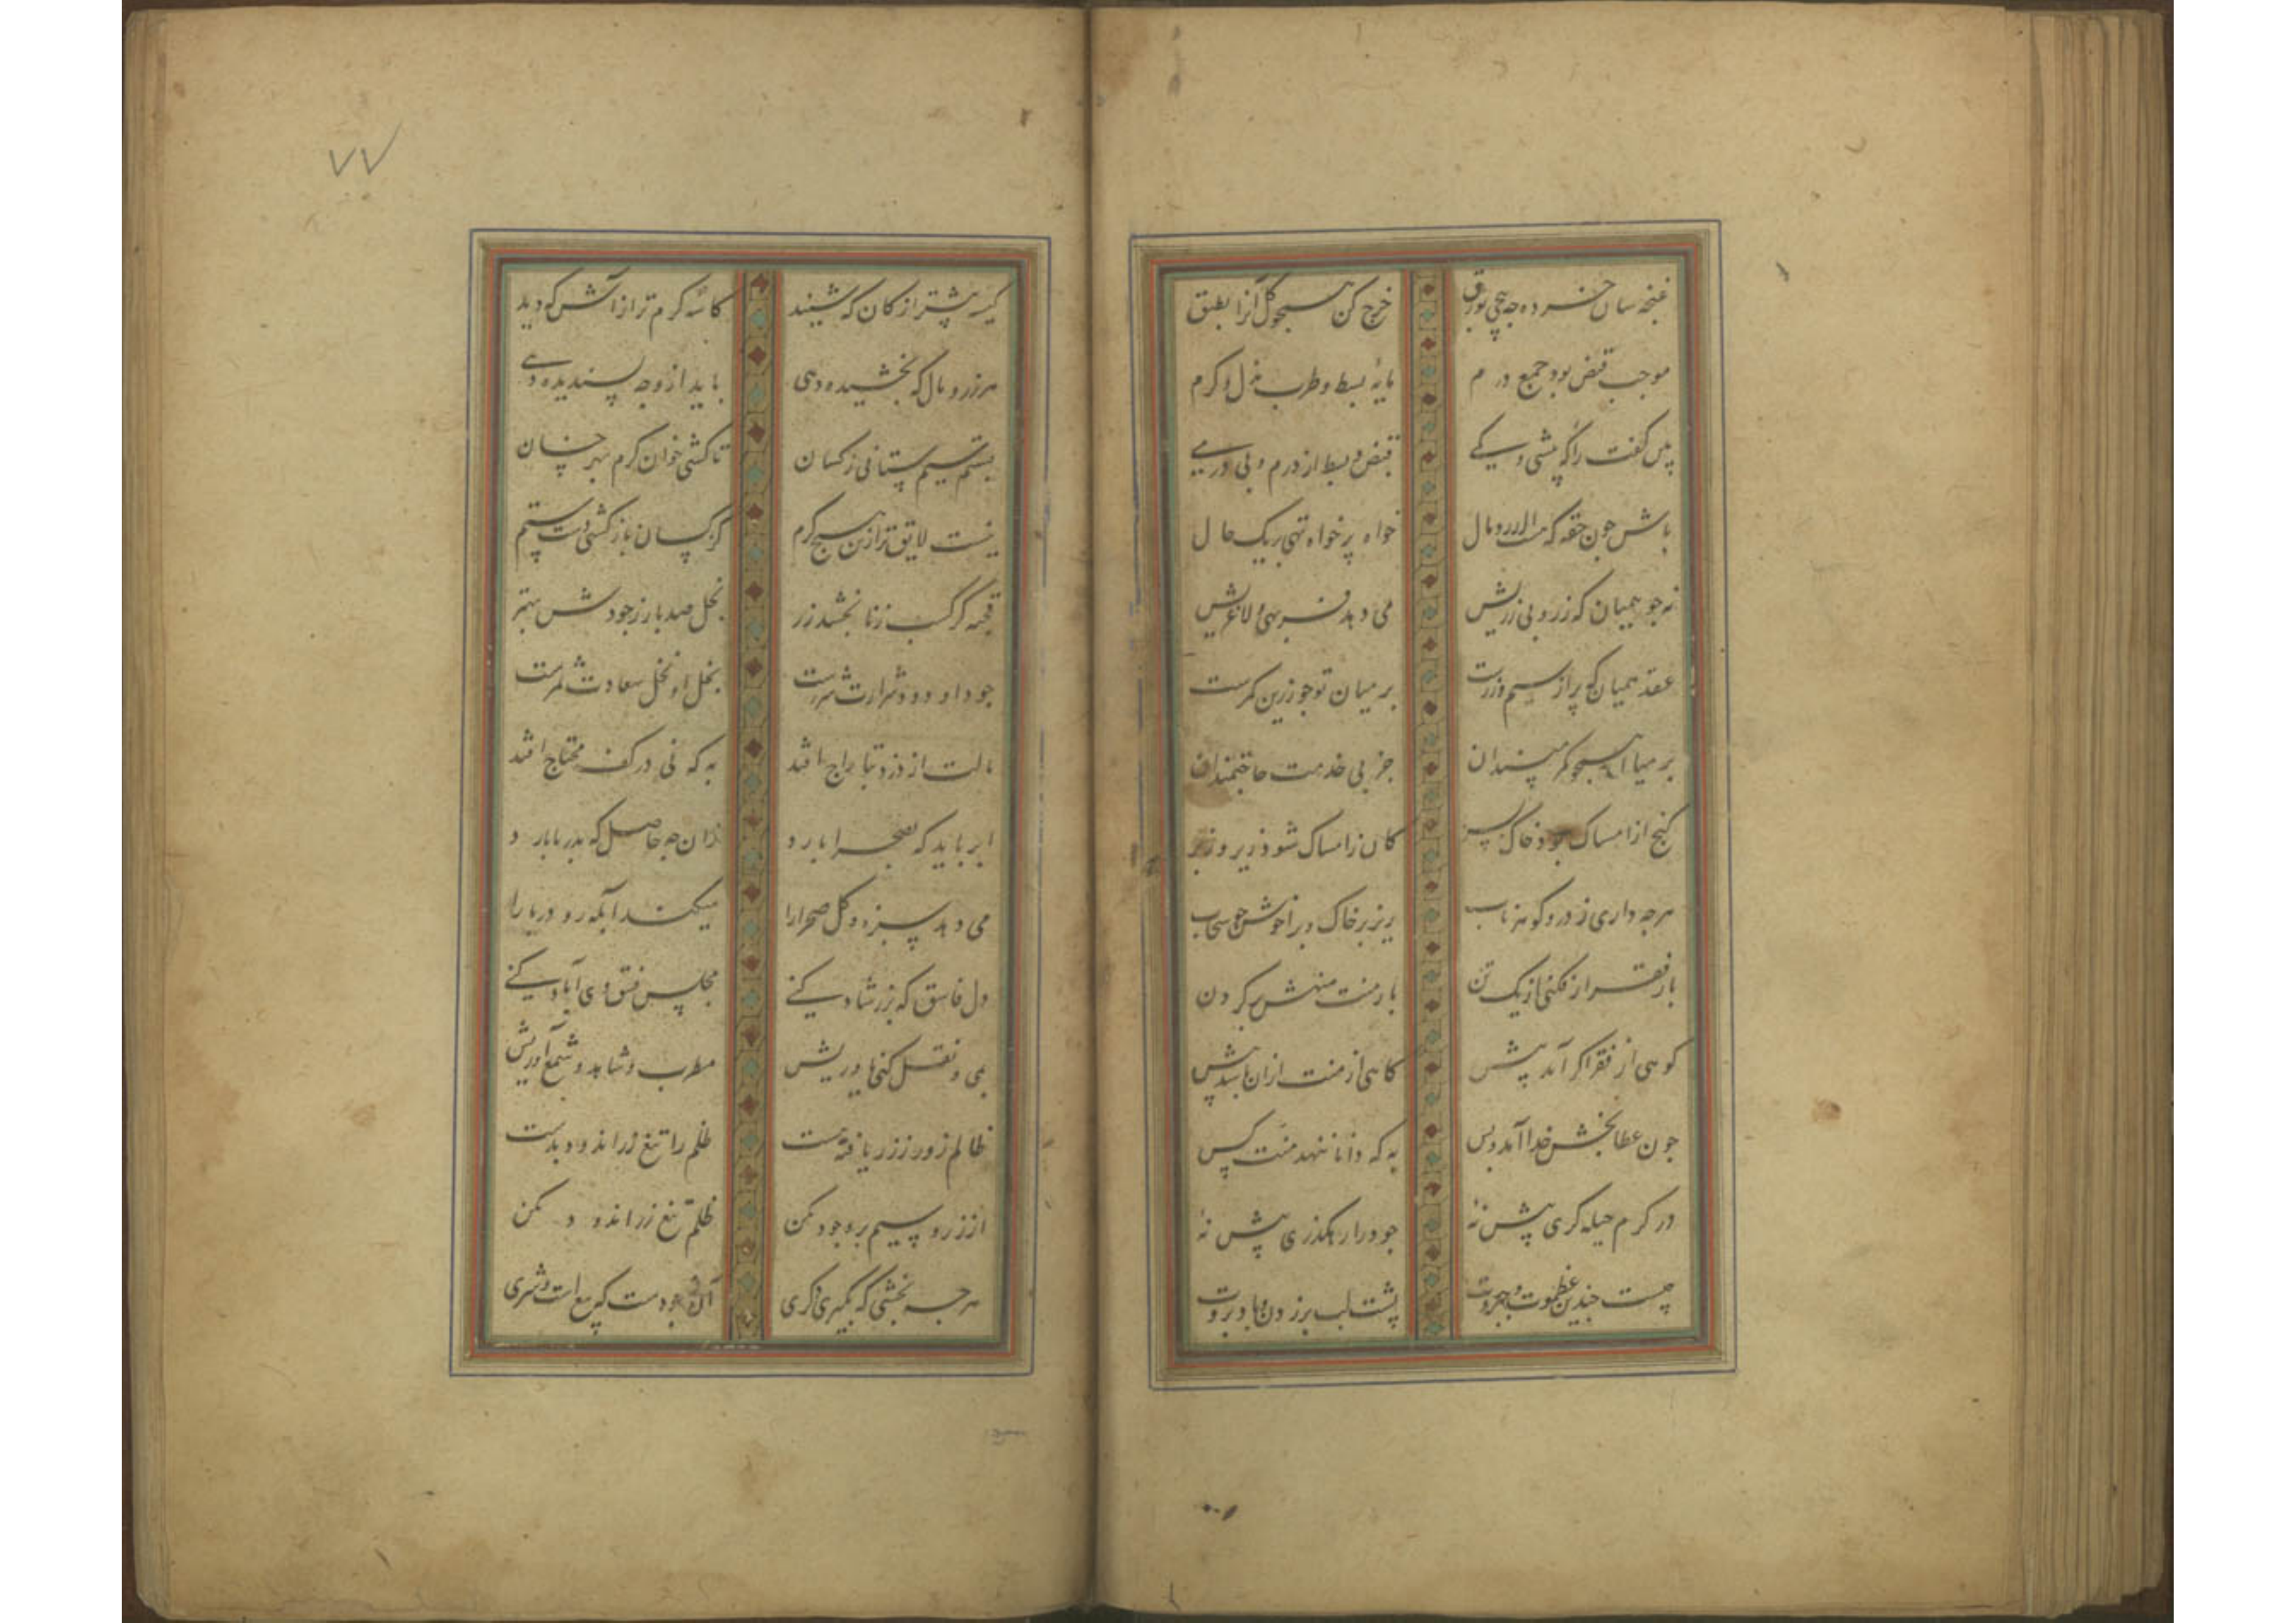 غنچه سان خرده چه پیچی بورق خرج کن همچو گل آنرا بطبق
موجب قبض بود جمع درم مایهٔ بسط و طرب بذل و کرم
پس کفت را که پیشی و یکی قبض و بسط از درم و بی درمی
باش چون حقه که مالامال خواه پر خواه تهی بر یک حال
نه چو همیان که زر و بی زریش می دهد فربهی و لاغریش
عقد همیان که پر از سیم و زرست بر میان تو چو زرین کمرست
بر میان همچو کمر مپسند آن جز پی خدمت حاجتمندان
گنج از امساک بود خاک بسر کان ز امساک شود زیر و زبر
هرچه داری ز در و گوهر ناب ریز بر خاک در آخوش چو سحاب
بار فقر ار فکنی از یک تن بار منت منهش بر گردن
کوهی از فقر اگر آید پیش کاهی از منت از آن باشد بیش
چون عطابخش خدا آمد و بس به که دانا ننهد منت کس
در کرم حیله‌گری پیش نهٔ جود را رهگذری پیش نهٔ
چیست چندین عظموت و جبروت پشت لب بر زدن و باد بروت
۷۷
کیسه پیشتر از کان که شنید کاسه گرم‌تر از آش که دید
هر زر و مال که بخشیده دهی باید از وجه پسندیده دهی
بستم سیم ستانی ز کسان تا کشی خوان کرم بهر خسان
نیست لایق‌تر ازین هیچ کرم کز کسان باز کشی دست ستم
قحبه کز کسب زنا بخشد زر بخل صد بار ز جودش بهتر
جود او دود شرارت شررست بخل او نخل سعادت ثمرست
مالت از دزد بتاراج افتد به که نی در کف محتاج افتد
ابر باید که بصحرا بارد زان چه حاصل که بدریا بارد
می دهد سبزه و گل صحرا را میکند آبله رو دریا را
دل فاسق که بزر شاد کنی مجلس فسق وی آباد کنی
می و نقل کنی یاوریش مطرب و شاهد و شمع آوریش
ظالم زور ز زر یافته هست ظلم را تیغ زر اندود بدست
از زر و سیم برو جود مکن ظلم تیغ زر اندود مکن
هرچه بخشی که بگیری دگری آن نه جودست که بیع است و شری